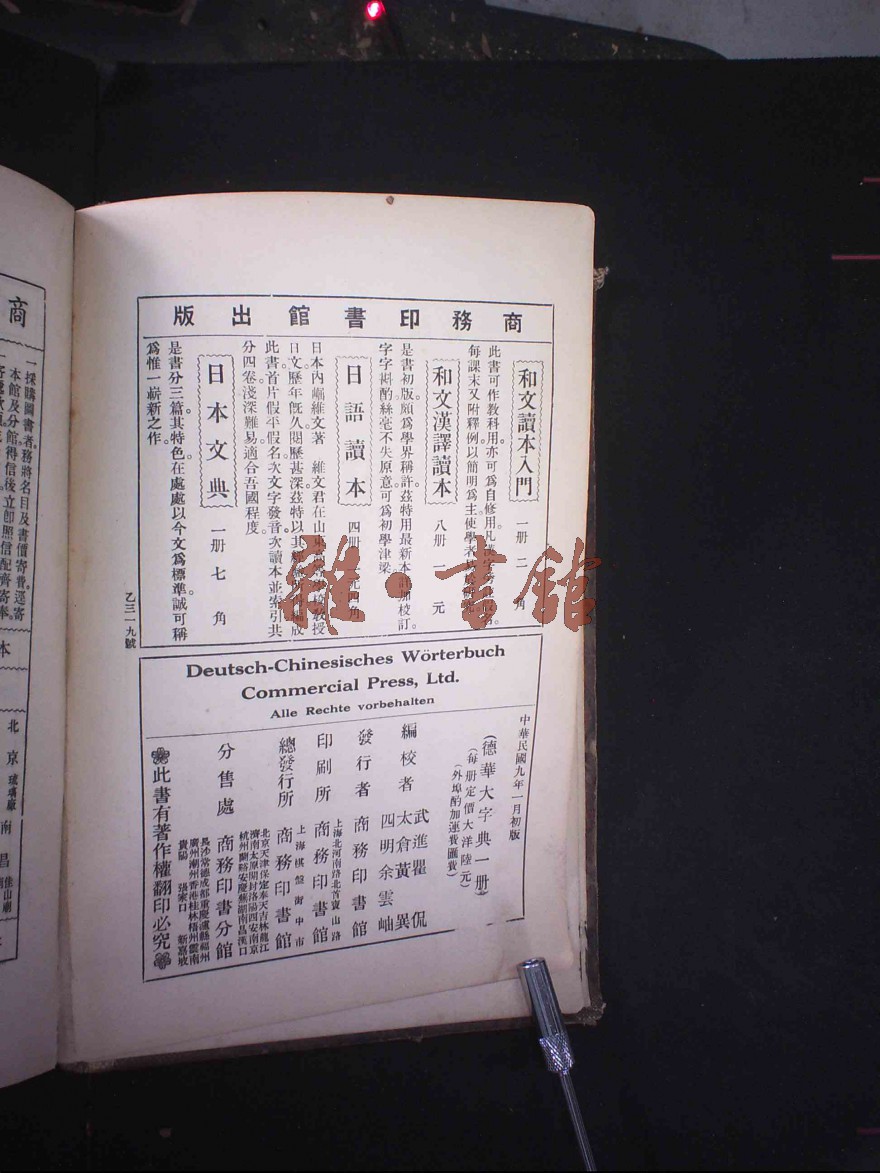 商務印書館出版
和文讀本入門
一册二角
此書可作教科用亦可爲自修用凡
每課末又附釋例以簡明爲主使學者
和文漢譯讀本
八册一元
是書初版頗爲學界稱許茲特用最新本詳加校訂
字字斟酌絲毫不失原意可爲初學津梁
日語讀本
四册
元四角
日本內崛維文著 維文君在山東
教授
日文歷年旣久閱歷甚深茲特以其
版
此書首片假平假名次文字發音次讀本並索引共
分四卷淺深難易適合吾國程度
日本文典
一册七角
是書分三篇其特色在處處以今文爲標準誠可稱
爲惟一嶄新之作
乙三一九號
雜·書館
Deutsch-Chinesisches Wörterbuch
Commercial Press, Ltd.
Alle Rechte vorbehalten
中華民國九年一月初版
(德華大字典一册)
(每册定價大洋陸元)
(外埠酌加運費匯費)
編校者
武進瞿侃
太倉黃異
四明余雲岫
發行者 商務印書館
印刷所
上海北河南路北首寶山路
商務印書館
總發行所
上海棋盤街中市
商務印書館
分售處
北京天津保定奉天吉林龍江
濟南太原開封洛陽西安南京
杭州蘭谿安慶蕪湖南昌漢口
商務印書分館
長沙常德成都重慶瀘縣福州
廣州潮州香港桂林梧州雲南
貴陽 張家口 新嘉坡
此書有著作權翻印必究
商
一採購圖書者務將名目及書價寄費逕寄
本館及分館得信後立卽照信配齊寄奉
本
北京琉璃廠
南昌